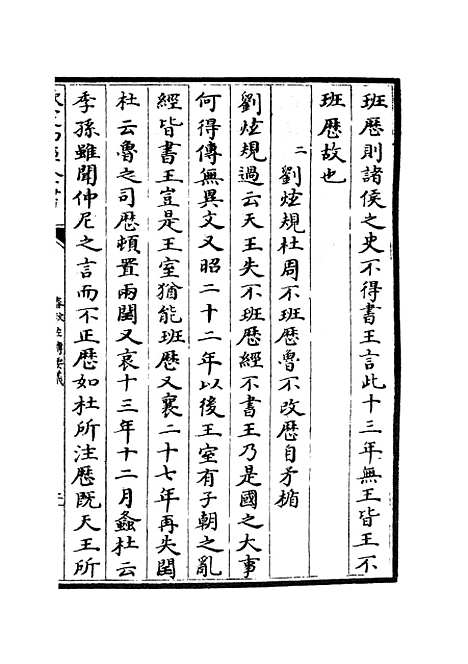 班歴則諸侯之史不得書王言此十三年無王皆王不
班歴故也
二劉炫規杜周不班歴魯不改歴自矛楯
劉炫規過云天王失不班歴經不書王乃是國之大事
何得傳無異文又昭二十二年以後王室有子朝之亂
經皆書王豈是王室猶能班歴又襄二十七年再失閏
杜云魯之司歴頓置兩閏又哀十三年十二月螽杜云
季孫雖聞仲尼之言而不正歴如杜所注歴既天王所
春秋左傳要義